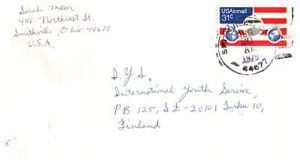 Sarah Marr
404 Northeast St.
Smithville, Ohio 44677
U.S.A.
USAirmail
31c
1979
44677
I.Y.S.
International Youth Service,
PB 125, SF-20101 Turku 10,
Finland